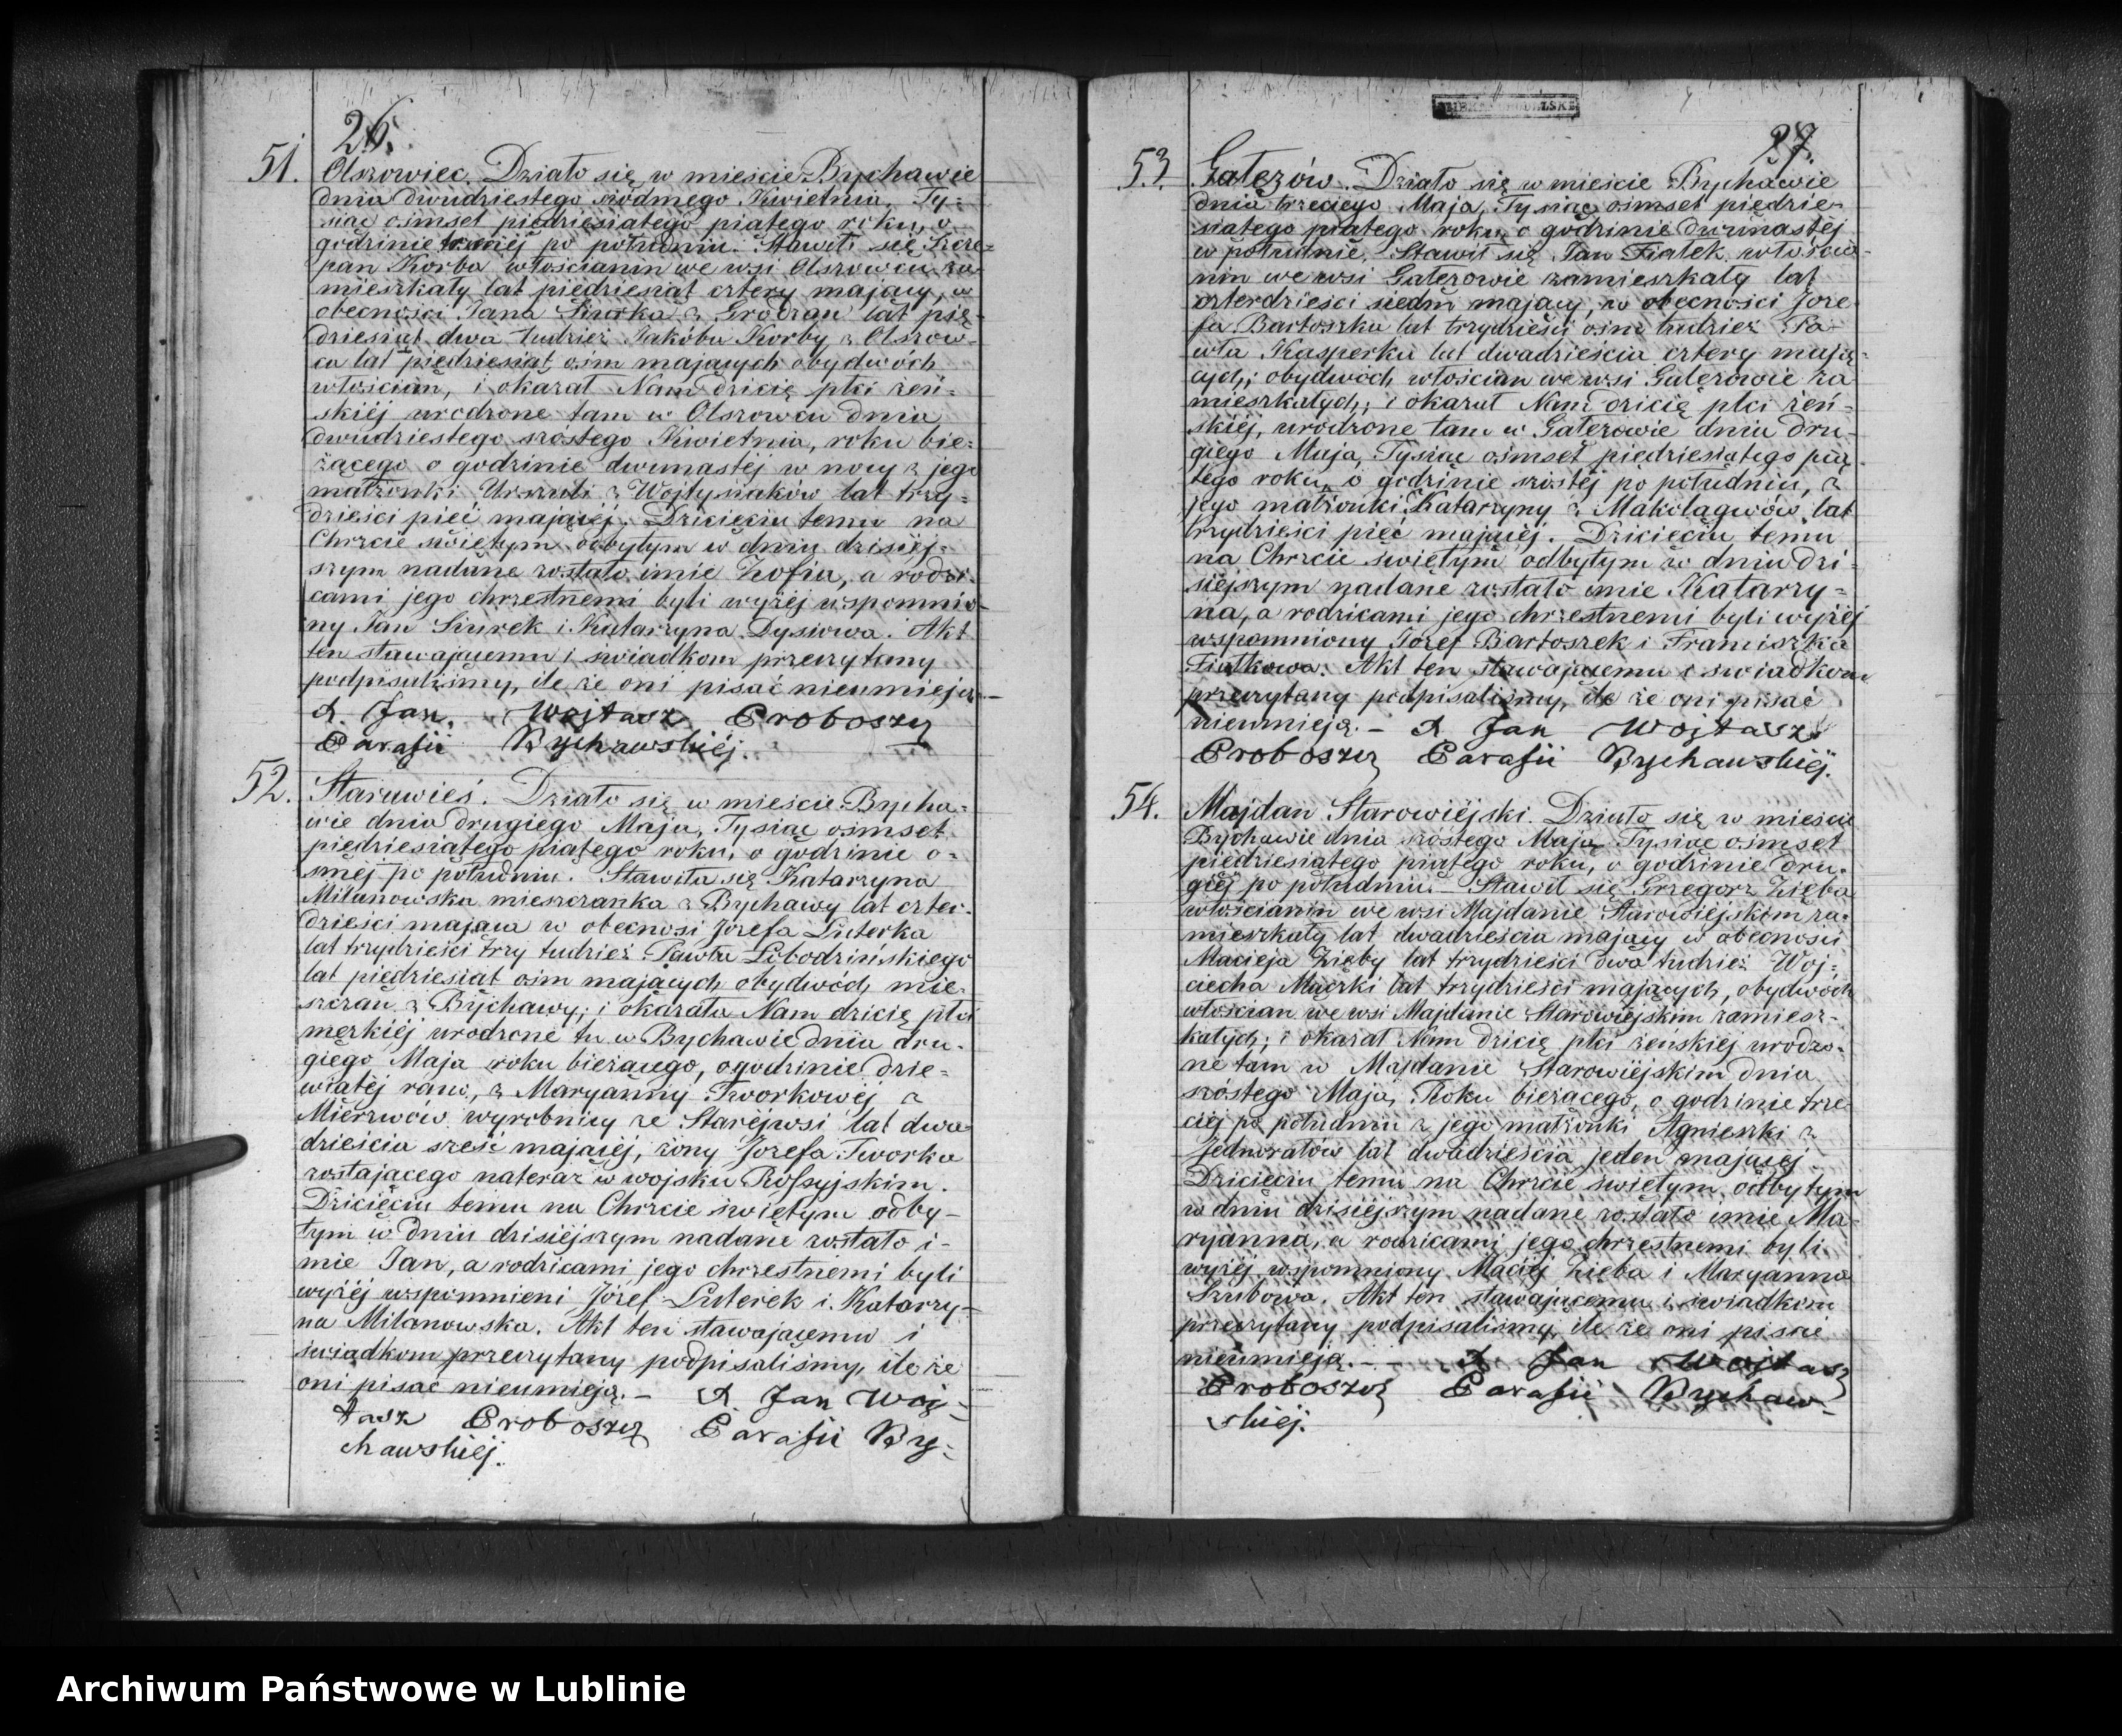 26.
51. Olszowiec. Działo się w mieście Bychawie
dnia dwudziestego siódmego Kwietnia, Ty-
siąc ośmset piędziesiątego piątego roku, o
godzinie trzeciéj po południu. Stawił się Szcze-
pan Korba włościanin we wsi Olszowcu za-
mieszkały lat piędziesiąt cztery mający, w
obecności Jana Siurka z Grodzan lat pię-
dziesiąt dwa tudzież Jakóba Korby z Olszow-
ca lat piędziesiąt ośm mających obydwóch
włościan, i okazał Nam dziecię płci żeń-
skiéj urodzone tam w Olszowcu dnia
dwudziestego szóstego Kwietnia, roku bie-
żącego o godzinie dwunastéj w nocy z jego
małżonki Urszuli z Wojtysiaków lat trzy-
dzieści pięć mającéj. Dziecięciu temu na
Chrzcie świętym odbytym w dniu dzisiéj-
szym nadane zostało imie Zofia, a rodzi-
cami jego chrzestnemi byli wyżéj wspomnio-
ny Jan Siurek i Katarzyna Dysiowa. Akt
ten stawającemu i świadkom przeczytany
podpisaliśmy, ile że oni pisać nieumieją. —
X. Jan Wojtasz Proboszcz
Parafii Bychawskiéj.
52. Starawieś. Działo się w mieście Bycha-
wie dnia drugiego Maja, Tysiąc ośmset
piędziesiątego piątego roku, o godzinie ó-
sméj po południu. Stawiła się Katarzyna
Milanowska mieszczanka z Bychawy lat czter-
dzieści mająca w obecnosi Józefa Luterka
lat trzydzieści trzy tudzież Pawła Łobodzińskiego
lat piędziesiąt ośm mających obydwóch mie-
szczan z Bychawy; i okazała Nam dziecię płci
męzkiéj urodzone tu w Bychawie dnia dru-
giego Maja roku bieżącego, o godzinie dzie-
wiątéj rano, z Maryanny Tworkowéj z
Mierzwów wyrobnicy ze Staréjwsi lat dwa-
dzieścia sześć mającéj, żony Józefa Tworka
zostającego nateraz w wojsku Rossyjskim.
Dziecięciu temu na Chrzcie świętym odby-
tym w dniu dzisiéjszym nadane zostało i-
mie Jan, a rodzicami jego chrzestnemi byli
wyżéj wspomnieni Józef Luterek i Katarzy-
na Milanowska. Akt ten stawającemu i
świadkom przeczytany podpisaliśmy, ile że
oni pisać nieumieją. — X. Jan Woj-
tasz Proboszcz Parafii By-
chawskiéj.
27.
53. Gałęzów. Działo się w mieście Bychawie
dnia trzeciego Maja, Tysiąc ośmset piędzie-
siątego piątego roku, o godzinie dwunastéj
w południe. Stawił się Jan Fiałek włościa-
nin we wsi Gałęzowie zamieszkały lat
czterdzieści siedm mający, w obecności Józe-
fa Bartoszka lat trzydzieści ośm tudzież Pa-
wła Kasperka lat dwadzieścia cztery mają-
cych, obydwóch włościan we wsi Gałęzowie za-
mieszkałych; i okazał Nam dziecię płci żeń-
skiéj, urodzone tam w Gałęzowie dnia dru-
giego Maja, Tysiąc ośmset piędziesiątego pią-
tego roku, o godzinie szóstéj po południu, z
jego małżonki Katarzyny z Makolagwów lat
trzydzieści pięć mającéj. Dziecięciu temu
na Chrzcie świętym odbytym w dniu dzi-
siéjszym nadane zostało imie Katarzy-
na, a rodzicami jego chrzestnemi byli wyżéj
wspomniony Józef Bartoszek i Franciszka
Fiałkowa. Akt ten stawającemu i świadkom
przeczytany podpisaliśmy, ile że oni pisać
nieumieją. — X Jan Wojtasz
Proboszcz Parafii Bychawskiéj.
54. Majdan Starowiéjski. Działo się w mieście
Bychawie dnia szóstego Maja Tysiąc ośmset
piędziesiątego piątego roku, o godzinie dru-
giéj po południu. Stawił się Grzegorz Zięba
włościanin we wsi Majdanie Starowiéjskim za-
mieszkały lat dwadzieścia mający w obecności
Macieja Zięby lat trzydzieści dwa tudzież Woj-
ciecha Maćzki lat trzydzieści mających, obydwóch
włościan we wsi Majdanie Starowiéjskim zamiesz-
kałych; i okazał Nam dziecię płci żeńskiej urodzo-
ne tam w Majdanie Starowiéjskim dnia
szóstego Maja, Roku bieżącego, o godzinie trze-
ciéj po południu z jego małżonki Agnieszki z
Jednoratów lat dwadzieścia jeden mającéj.
Dziecięciu temu na Chrzcie świętym odbytym
w dniu dzisiéjszym nadane zostało imie Ma-
ryanna, a rodzicami jego chrzestnemi byli
wyżéj wspomniony Maciéj Zięba i Maryanna
Szubowa. Akt ten stawającemu i świadkom
przeczytany podpisaliśmy, ile że oni pisać
nieumieją. — X Jan Wojtasz
Proboszcz Parafii Bychaw-
skiéj.
Archiwum Państwowe w Lublinie